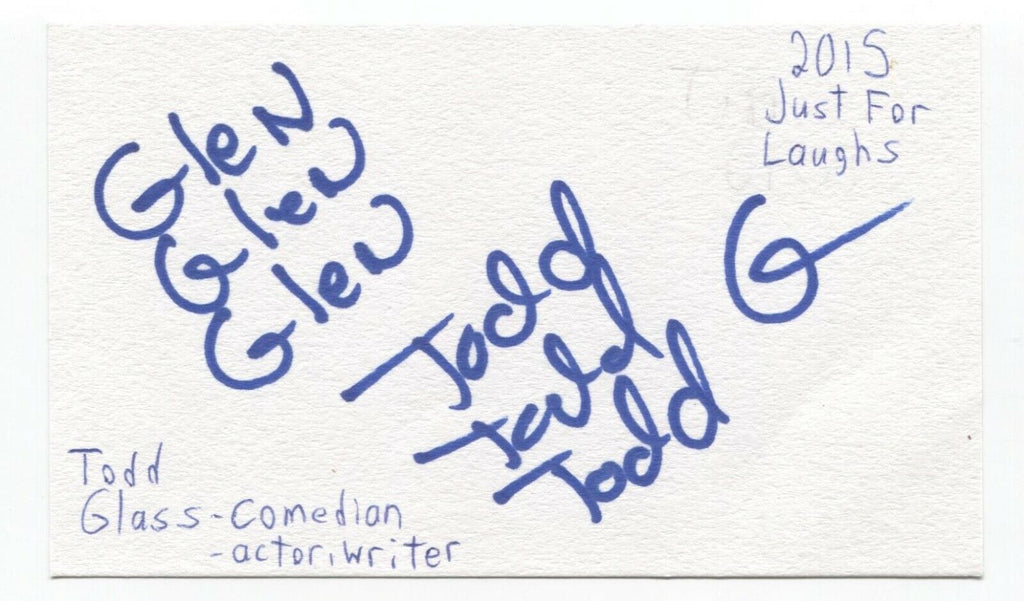 2015
Just For
Laughs
Glen
Glen
Glen
Todd
Todd
Todd
G
Todd
Glass - Comedian
- actor, writer